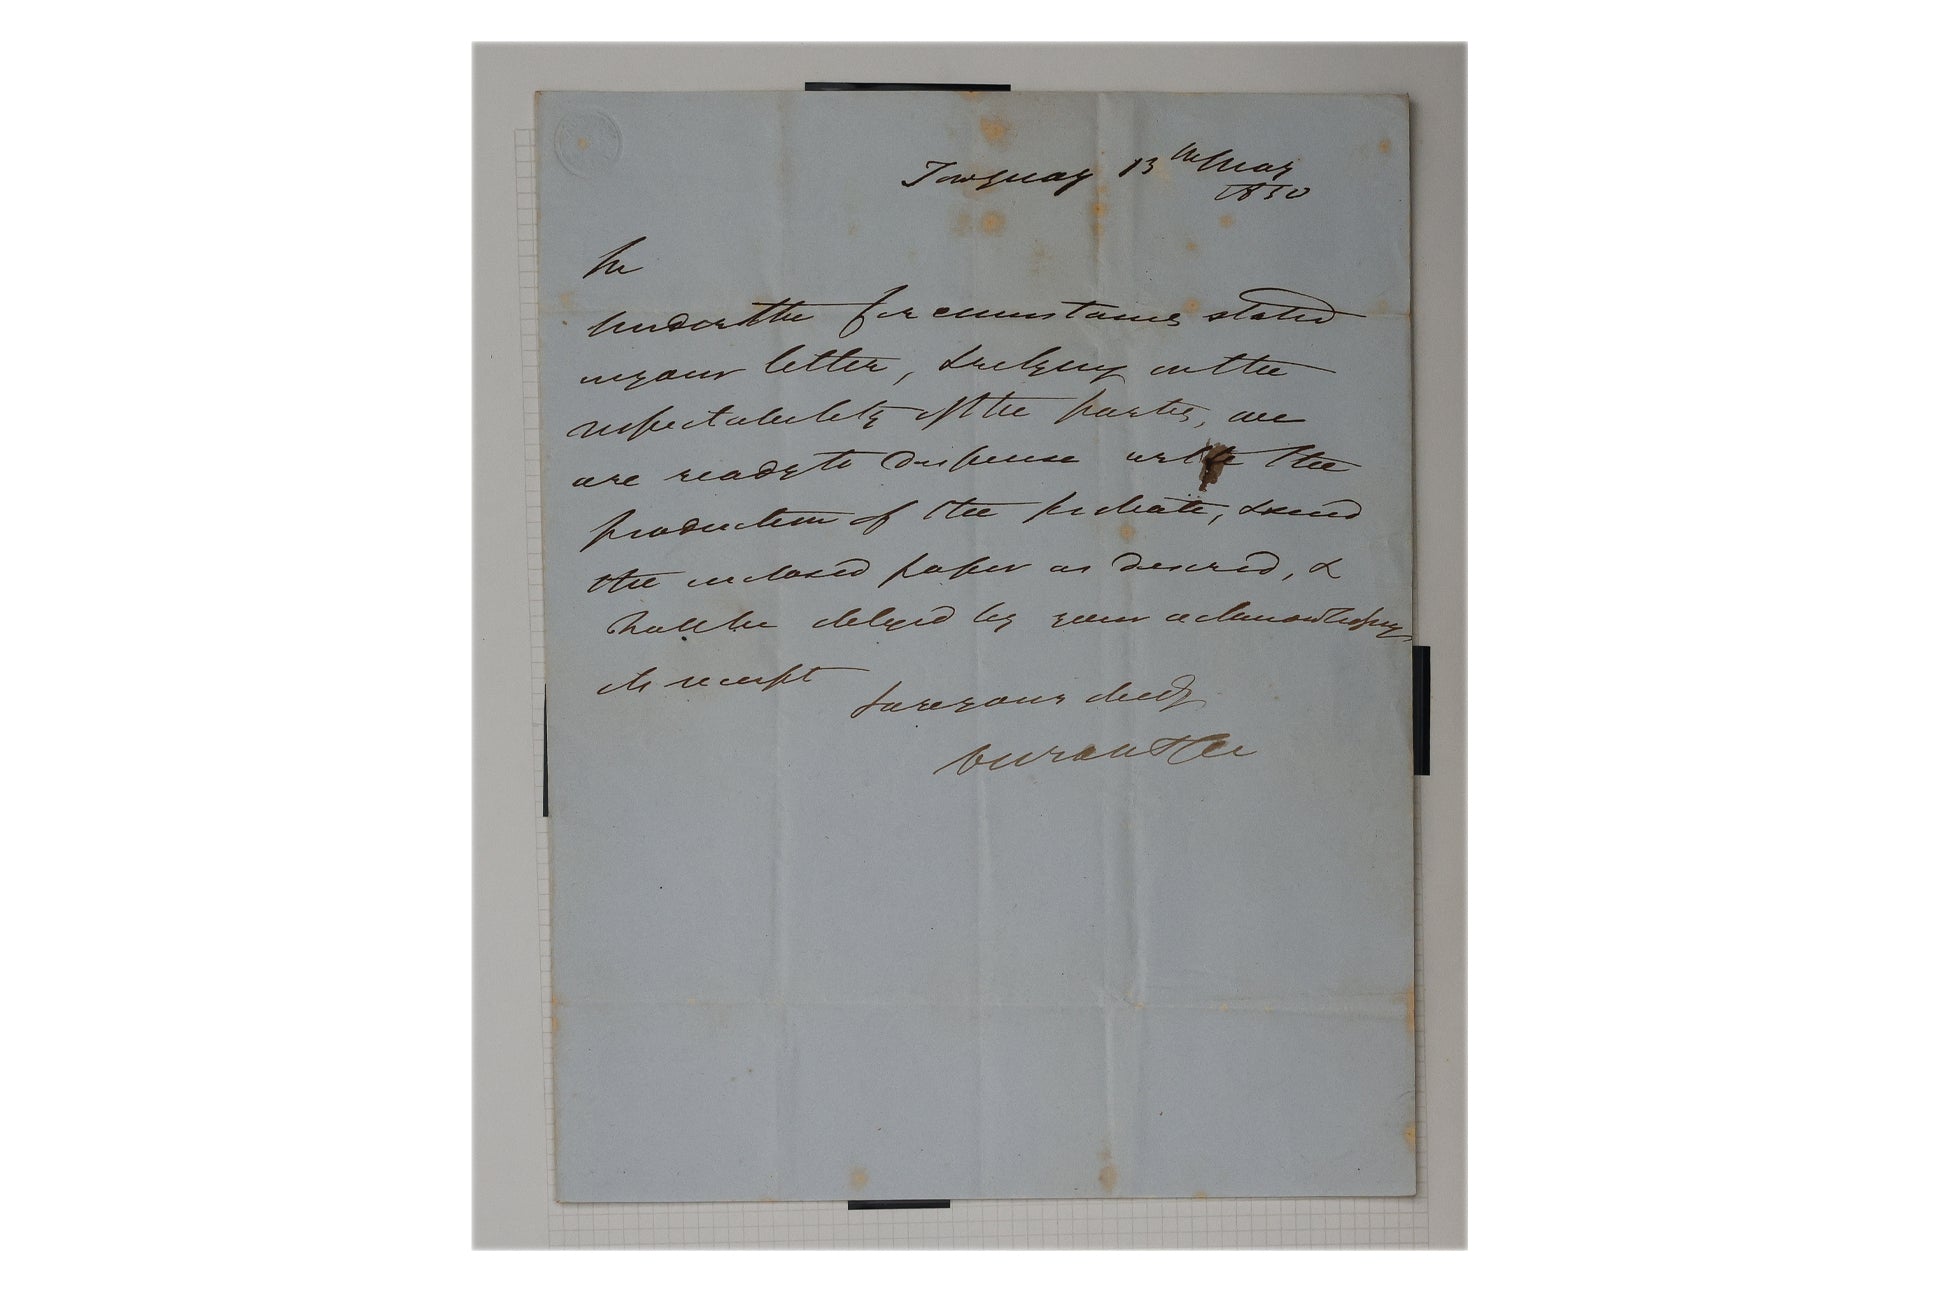 Torquay 13th May
1850
Sir
Under the circumstances stated
in your letter, & relying on the
respectability of the parties, we
are ready to dispense with the
production of the probate, & send
the enclosed paper as desired, &
shall be obliged by your acknowledging
its receipt
& are your obed